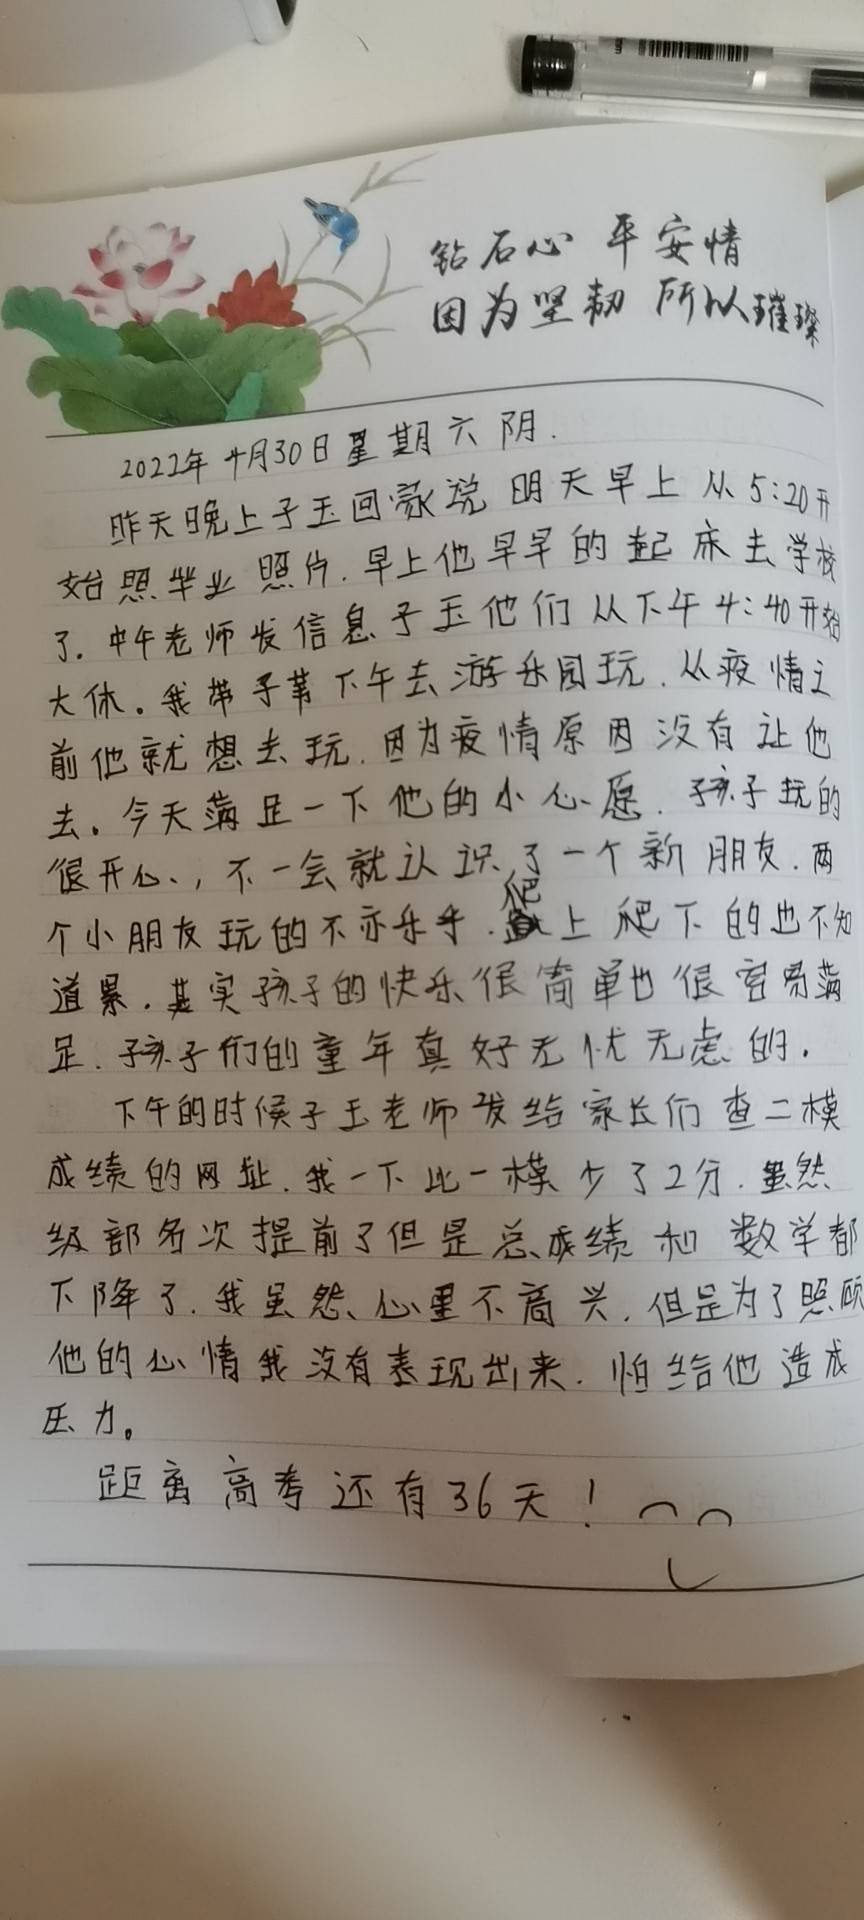 钻石心 平安情
因为坚韧 所以璀璨
2022年4月30日星期六阴.
昨天晚上子玉回家说 明天早上从5:20开
始照毕业照片.早上他早早的起床去学校
了.中午老师发信息子玉他们从下午4:40开始
大休。我带子苇下午去游乐园玩.从疫情之
前他就想去玩.因为疫情原因没有让他
去。今天满足一下他的小心愿.孩子玩的
很开心、,不一会就认识了一个新朋友.两
个小朋友玩的不亦乐乎.爬上爬下的也不知
道累.其实孩子的快乐很简单也很容易满
足.孩子们的童年真好无忧无虑的.
下午的时候子玉老师发给家长们查二模
成绩的网址.我一下比一模少了2分.虽然
级部名次提前了但是总成绩和数学都
下降了.我虽然心里不高兴.但是为了照顾
他的心情我没有表现出来.怕给他造成
压力。
距离高考还有36天!